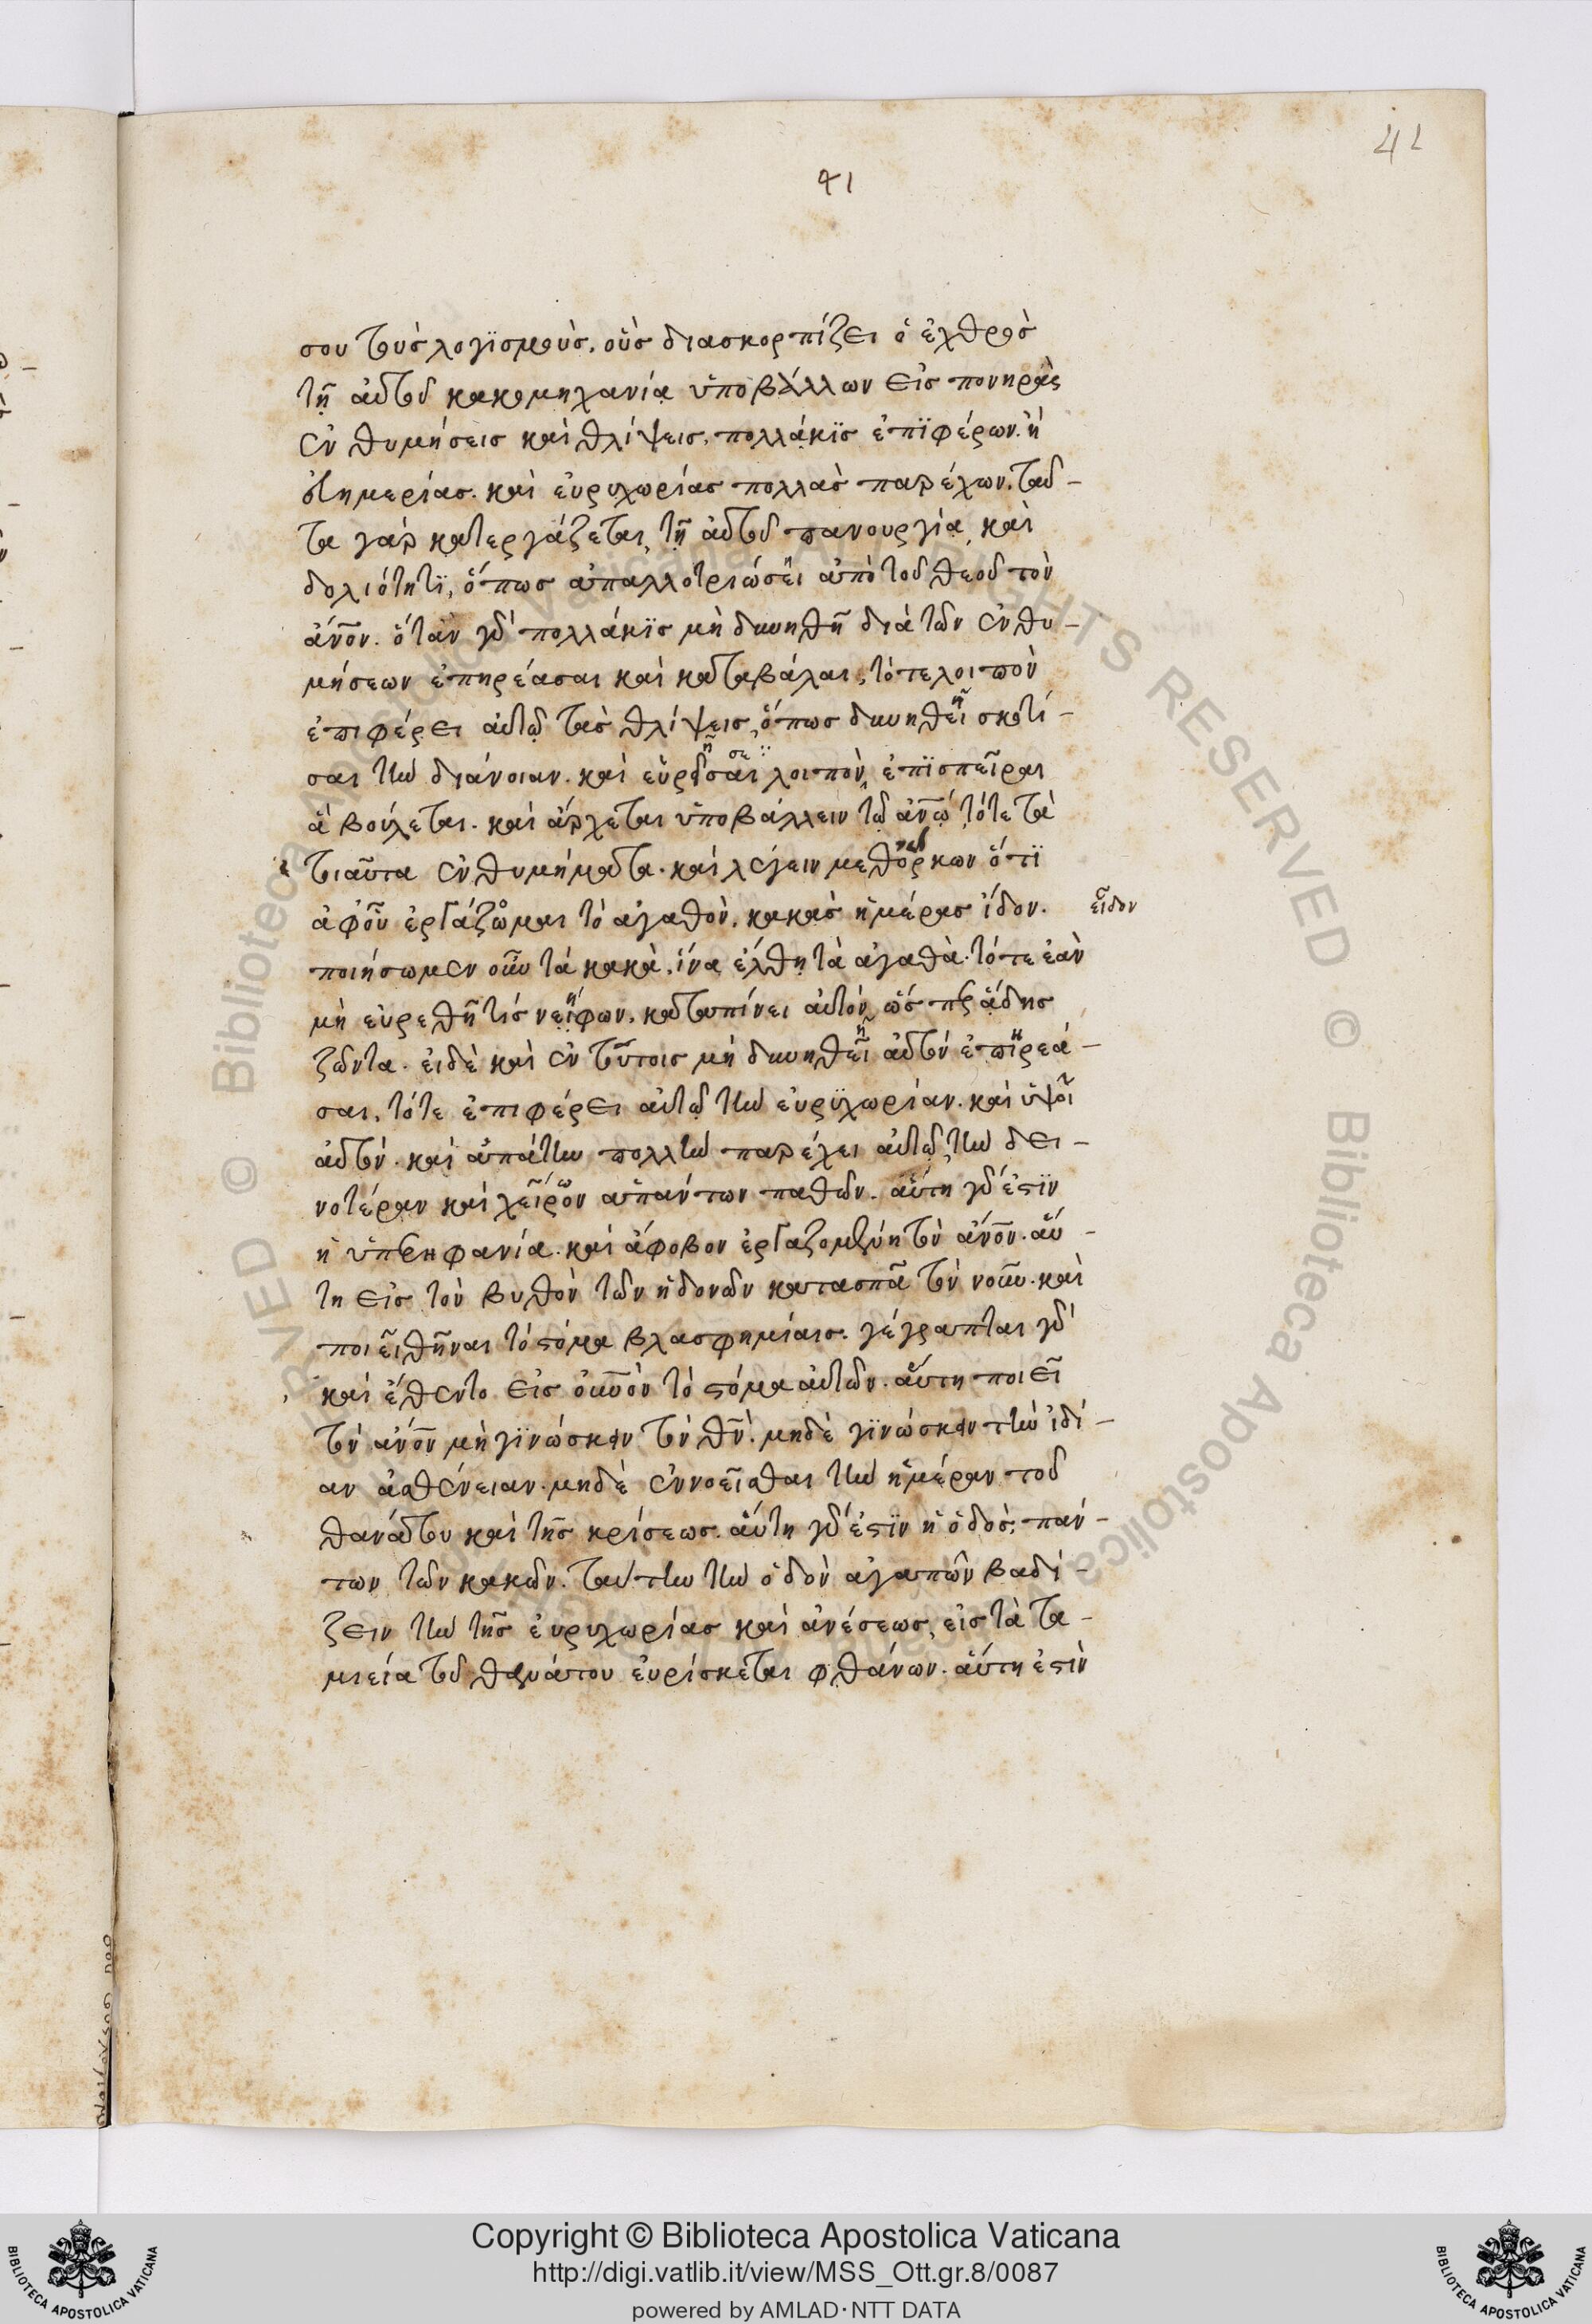 41
41
σου τοὺς λογϊσμοὺς, οὓς διασκορπίζει ὁ ἐχθρὸς
τῆ αὐτοῦ κακομηχανία ὑποβάλλων εἰς πονηρὰς
ἐνθυμήσεις καὶ θλίψεις, πολλάκϊς ἐπϊφέρων. ἢ
καὶ εὐρυχωρίας πολλὰς παρέχων. ταῦ-
τα γὰρ κατεργάζεται, τῆ αὐτοῦ πανουργία, καὶ
δολιότητϊ, ὅπως ἀπαλλοτριώσει ἀπὸ τοῦ θεοῦ τὸν
ἄνον. ὅταν γὰρ πολλάκϊς μὴ δυνηθῆ διὰ τῶν ἐνθυ-
μήσεων ἐπηρέασαι καὶ καταβάλαι, τότε λοιπὸν
ἐπιφέρει αὐτῶ τὰς θλίψεις, ὅπως δυνηθεῖ σκοτί-
σαι τὴν διάνοιαν. καὶ λοιπὸν, ἐπϊσπεῖραι
ἃ βούλεται. καὶ ἄρχεται ὑποβάλλειν τῶ ἀνω τότε τὰ
τιαῦτα ἐνθυμήματα. καὶ λέγειν μεθόρκων ὅτϊ
ἀφοῦ ἐργάζομαι τὸ ἀγαθὸν, κακὰς ἡμέρας ἴδον.
εἶδον
ποιήσωμεν οὖν τὰ κακὰ, ἵνα ἔλθη τὰ ἀγαθὰ. τότε ἐὰν
μὴ εὑρεθῆ τίς νείφων, καταπίνει αὐτὸν, ὥσπερ ἅδης
ζῶντα. εἰδὲ καὶ ἐν τούτοις μὴ δυνηθεῖ αὐτὸν ἐπηρεά-
σαι, τότε ἐπιφέρει αὐτῶ τὴν εὐρϋχωρίαν. καὶ ὑψοῖ
αὐτὸν. καὶ ἀπάτην πολλὴν παρέχει αὐτῶ, τὴν δει-
νοτέραν καὶ χεῖρον ἁπάντων παθῶν. αὕτη γὰρ ἐστϊν
ἡ ὑπερηφανία. καὶ ἄφοβον ἐργαζομένη τὸν ἄνον. αὕ-
τη εἰς τὸν βυθὸν τῶν ἡδονῶν κατασπᾶ τὸν νοῦν. καὶ
ποιεῖ θῆναι τὸ στόμα βλασφημίαις. γέγραπται γὰρ
καὶ ἔθεντο εἰς οὐνὸν τὸ στόμα αὐτῶν. αὕτη ποιεῖ
τὸν ἄνον μὴ γϊνώσκειν τὸν θν. μηδὲ γϊνώσκειν τὴν ἰδί-
αν ἀσθένειαν. μηδὲ ἐννοεῖσθαι τὴν ἡμέραν τοῦ
θανάτου καὶ τῆς κρίσεως. αὕτη γὰρ ἐστϊν ἡ ὁδὸς, πάν-
των τῶν κακῶν. ταύτην τὴν ὁδὸν ἀγαπῶν βαδί-
ζειν τὴν τῆς εὐρυχωρίας καὶ ἀνέσεως, εἰς τὰ τα-
μιεία τοῦ θανάτου εὑρίσκεται φθάνων. αὕτη ἐστὶν
Copyright © Biblioteca Apostolica Vaticana
http://digi.vatlib.it/view/MSS_Ott.gr.8/0087
powered by AMLAD·NTT DATA